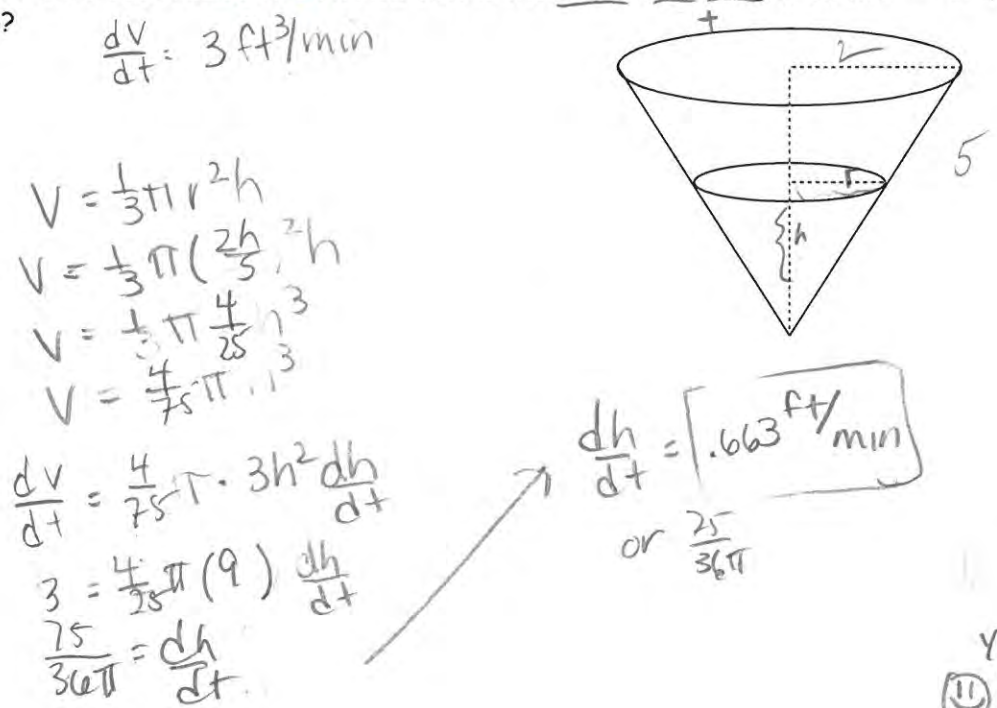 ?
dV/dt = 3 ft³/min
V = 1/3 π r² h
V = 1/3 π (2h/5)² h
V = 1/3 π 4/25 h³
V = 4/75 π h³
dV/dt = 4/75 π · 3h² dh/dt
3 = 4/25 π (9) dh/dt
75/36π = dh/dt
2
5
r
h
dh/dt = .663 ft/min
or 25/36π